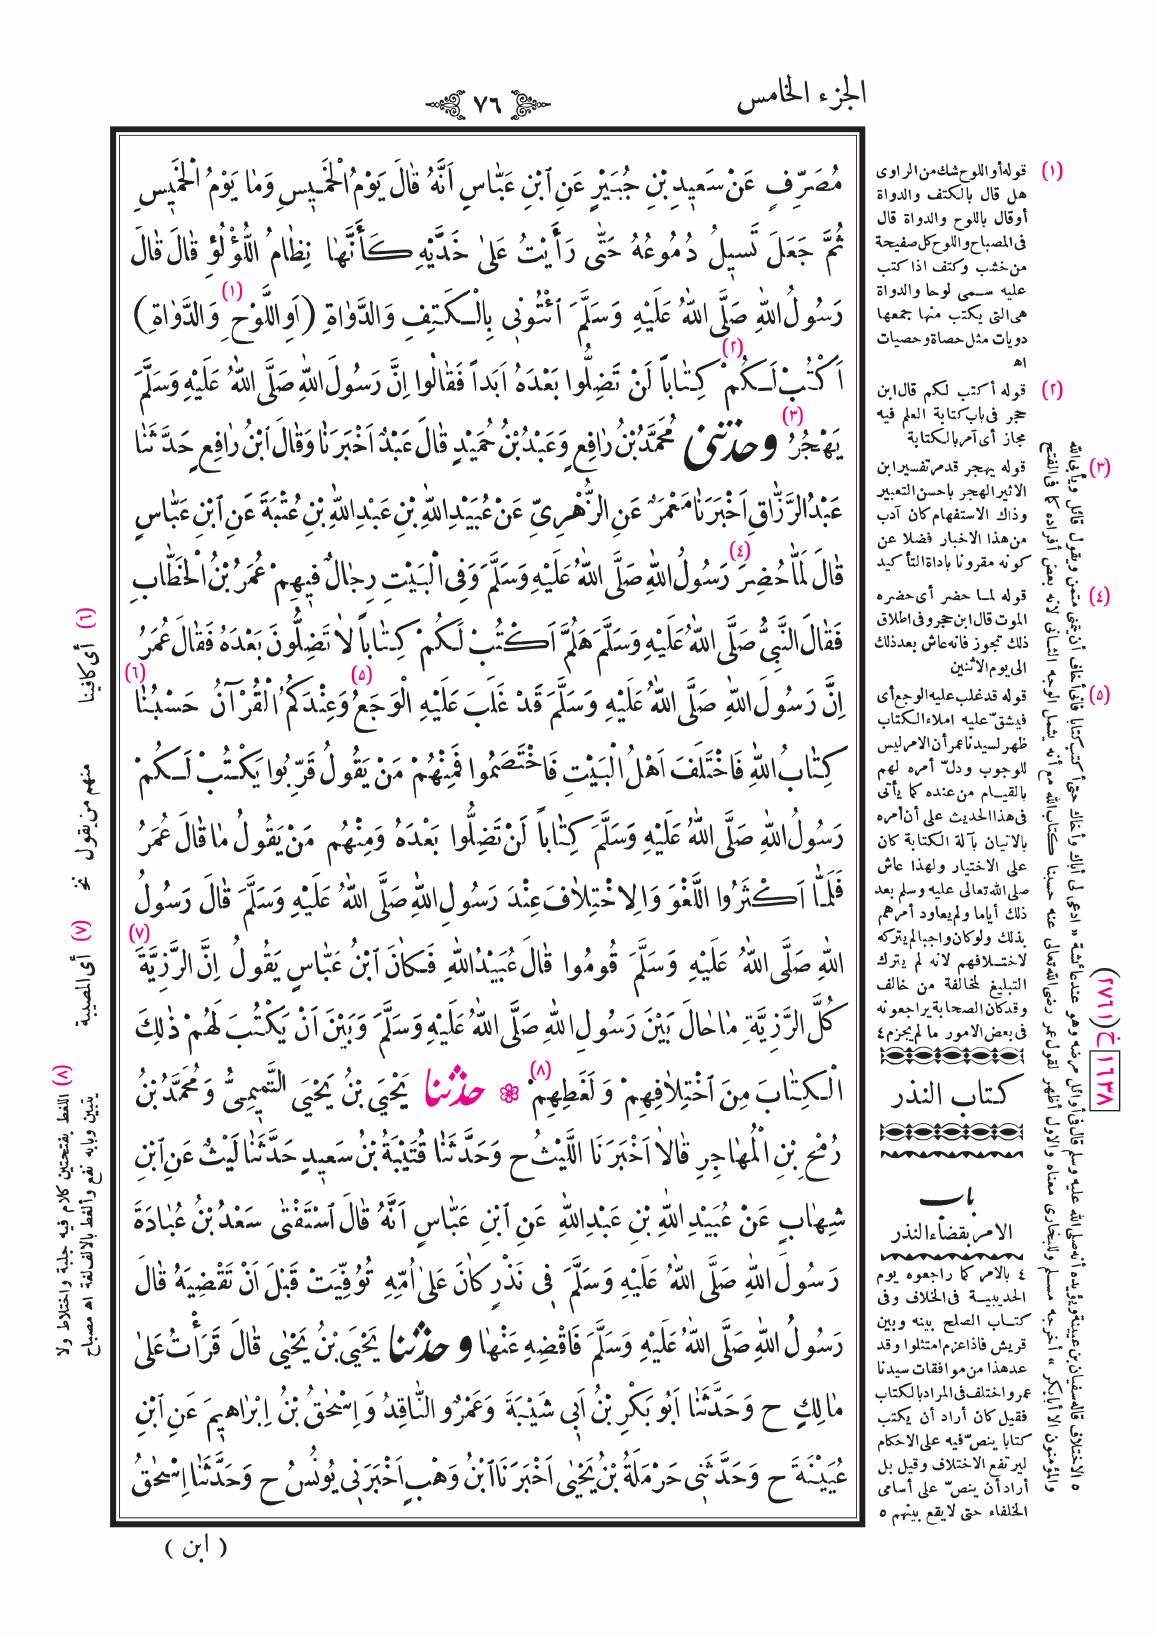 الجزء الخامس
٧٦
مُصَرِّفٍ عَنْ سَعيدِ بْنِ جُبَيْرٍ عَنِ ابْنِ عَبَّاسٍ اَنَّهُ قَالَ يَوْمُ الْخَميسِ وَمَا يَوْمُ الْخَميسِ
ثُمَّ جَعَلَ تَسيلُ دُمُوعُهُ حَتّٰى رَأَيْتُ عَلىٰ خَدَّيْهِ كَأَنَّهَا نِظَامُ اللُّؤْلُؤِ قَالَ قَالَ
رَسُولُ اللهِ صَلَّى اللهُ عَلَيْهِ وَسَلَّمَ اَئْتُونى بِالْكَتِفِ وَالدَّوَاةِ (اَوِ اللَّوْحِ (١) وَالدَّوَاةِ)
اَكْتُبْ لَكُمْ (٢) كِتَاباً لَنْ تَضِلُّوا بَعْدَهُ اَبَداً فَقَالُوا اِنَّ رَسُولَ اللهِ صَلَّى اللهُ عَلَيْهِ وَسَلَّمَ
يَهْجُرُ (٣) وحدثنى مُحَمَّدُ بْنُ رَافِعٍ وَعَبْدُ بْنُ حُمَيْدٍ قَالَ عَبْدٌ اَخْبَرَنَا وَقَالَ ابْنُ رَافِعٍ حَدَّثَنَا
عَبْدُ الرَّزَّاقِ اَخْبَرَنَا مَعْمَرٌ عَنِ الزُّهْرِىِّ عَنْ عُبَيْدِ اللهِ بْنِ عَبْدِ اللهِ بْنِ عُتْبَةَ عَنِ ابْنِ عَبَّاسٍ
قَالَ لَمَّا حُضِرَ (٤) رَسُولُ اللهِ صَلَّى اللهُ عَلَيْهِ وَسَلَّمَ وَفِى الْبَيْتِ رِجَالٌ فيهِمْ عُمَرُ بْنُ الْخَطَّابِ
فَقَالَ النَّبِىُّ صَلَّى اللهُ عَلَيْهِ وَسَلَّمَ هَلُمَّ اَكْتُبْ لَكُمْ كِتَاباً لاٰ تَضِلُّونَ بَعْدَهُ فَقَالَ عُمَرُ
اِنَّ رَسُولَ اللهِ صَلَّى اللهُ عَلَيْهِ وَسَلَّمَ قَدْ غَلَبَ عَلَيْهِ الْوَجَعُ (٥) وَعِنْدَكُمُ الْقُرْآنُ حَسْبُنَا (٦)
كِتَابُ اللهِ فَاخْتَلَفَ اَهْلُ الْبَيْتِ فَاخْتَصَمُوا فَمِنْهُمْ مَنْ يَقُولُ قَرِّبُوا يَكْتُبْ لَكُمْ
رَسُولُ اللهِ صَلَّى اللهُ عَلَيْهِ وَسَلَّمَ كِتَاباً لَنْ تَضِلُّوا بَعْدَهُ وَمِنْهُمْ مَنْ يَقُولُ مَا قَالَ عُمَرُ
فَلَمَّا اَكْثَرُوا اللَّغْوَ وَالِاخْتِلاٰفَ عِنْدَ رَسُولِ اللهِ صَلَّى اللهُ عَلَيْهِ وَسَلَّمَ قَالَ رَسُولُ
اللهِ صَلَّى اللهُ عَلَيْهِ وَسَلَّمَ قُومُوا قَالَ عُبَيْدُ اللهِ فَكَانَ ابْنُ عَبَّاسٍ يَقُولُ اِنَّ الرَّزِيَّةَ (٧)
كُلَّ الرَّزِيَّةِ مَا حَالَ بَيْنَ رَسُولِ اللهِ صَلَّى اللهُ عَلَيْهِ وَسَلَّمَ وَبَيْنَ اَنْ يَكْتُبَ لَهُمْ ذٰلِكَ
الْكِتَابَ مِنَ اخْتِلاٰفِهِمْ وَلَغَطِهِمْ (٨) حدثنا يَحْيَى بْنُ يَحْيَى التَّميمِىُّ وَمُحَمَّدُ بْنُ
رُمْحِ بْنِ الْمُهَاجِرِ قَالاَ اَخْبَرَنَا اللَّيْثُ ح وَحَدَّثَنَا قُتَيْبَةُ بْنُ سَعيدٍ حَدَّثَنَا لَيْثٌ عَنِ ابْنِ
شِهَابٍ عَنْ عُبَيْدِ اللهِ بْنِ عَبْدِ اللهِ عَنِ ابْنِ عَبَّاسٍ اَنَّهُ قَالَ اسْتَفْتٰى سَعْدُ بْنُ عُبَادَةَ
رَسُولَ اللهِ صَلَّى اللهُ عَلَيْهِ وَسَلَّمَ فى نَذْرٍ كَانَ عَلىٰ اُمِّهِ تُوُفِّيَتْ قَبْلَ اَنْ تَقْضِيَهُ قَالَ
رَسُولُ اللهِ صَلَّى اللهُ عَلَيْهِ وَسَلَّمَ فَاقْضِهِ عَنْهَا وحدثنا يَحْيَى بْنُ يَحْيٰى قَالَ قَرَأْتُ عَلىٰ
مَالِكٍ ح وَحَدَّثَنَا اَبُو بَكْرِ بْنُ اَبى شَيْبَةَ وَعَمْرٌو النَّاقِدُ وَاِسْحٰقُ بْنُ اِبْرَاهيمَ عَنِ ابْنِ
عُيَيْنَةَ ح وَحَدَّثَنى حَرْمَلَةُ بْنُ يَحْيٰى اَخْبَرَنَا ابْنُ وَهْبٍ اَخْبَرَنى يُونُسُ ح وَحَدَّثَنَا اِسْحٰقُ
( ابن )
(١) قوله أو اللوح شك من الراوى
هل قال بالكتف والدواة
أو قال باللوح والدواة قال
فى المصباح واللوح كل صفيحة
من خشب وكتف اذا كتب
عليه سمى لوحا والدواة
هى التى يكتب منها جمعها
دويات مثل حصاة وحصيات
اه
(٢) قوله أكتب لكم قال ابن
حجر فى باب كتابة العلم فيه
مجاز أى آمر بالكتابة
(٣) قوله يهجر قد مر تفسير ابن
الاثير الهجر باحسن التعبير
وذاك الاستفهام كان آدب
من هذا الاخبار فضلا عن
كونه مقرونا باداة التأكيد
(٤) قوله لما حضر أى حضره
الموت قال ابن حجر وفى اطلاق
ذلك تجوز فانه عاش بعد ذلك
الى يوم الاثنين
(٥) قوله قد غلب عليه الوجع أى
فيشقّ عليه املاء الكتاب
ظهر لسيدنا عمر أن الامر ليس
للوجوب ودلّ أمره لهم
بالقيام من عنده كما يأتى
فى هذا الحديث على أن أمره
بالاتيان بآلة الكتابة كان
على الاختيار ولهذا عاش
صلى الله تعالى عليه وسلم بعد
ذلك أياما ولم يعاود أمرهم
بذلك ولو كان واجبا لم يتركه
لاختلافهم لانه لم يترك
التبليغ لمخالفة من خالف
وقد كان الصحابة يراجعونه
فى بعض الامور ما لم يجزم ٤
كتاب النذر
باب
الامر بقضاء النذر
٤ بالامر كما راجعوه يوم
الحديبية فى الخلاف وفى
كتاب الصلح بينه وبين
قريش فاذا عزم امتثلوا وقد
عد هذا من موافقات سيدنا
عمر واختلف فى المراد بالكتاب
فقيل كان أراد أن يكتب
كتابا ينصّ فيه على الاحكام
ليرتفع الاختلاف وقيل بل
أراد أن ينصّ على أسامى
الخلفاء حتى لا يقع بينهم ٥
٥ الاختلاف قاله سفيان بن عيينة ويؤيده أنه صلى الله عليه وسلم قال فى أوائل مرضه وهو عند عائشة « ادعى لى أباك وأخاك حتى أكتب كتابا فانى أخاف أن يتمنى متمن ويقول قائل ويأبى الله
والمؤمنون الا أبا بكر » أخرجه مسلم وللبخارى معناه والاول أظهر لقول عمر رضى الله تعالى عنه حسبنا كتاب الله مع أنه يشمل الوجه الثانى لانه بعض أفراده كما فى الفتح
١٦٣٨ خ (٢٧٦١)
(٦) أى كافينا
منهم من يقول نخ
(٧) أى المصيبة
(٨) اللغط بفتحتين كلام فيه جلبة واختلاط ولا
يتبين وبابه نفع وألغط بالالف لغة اه مصباح